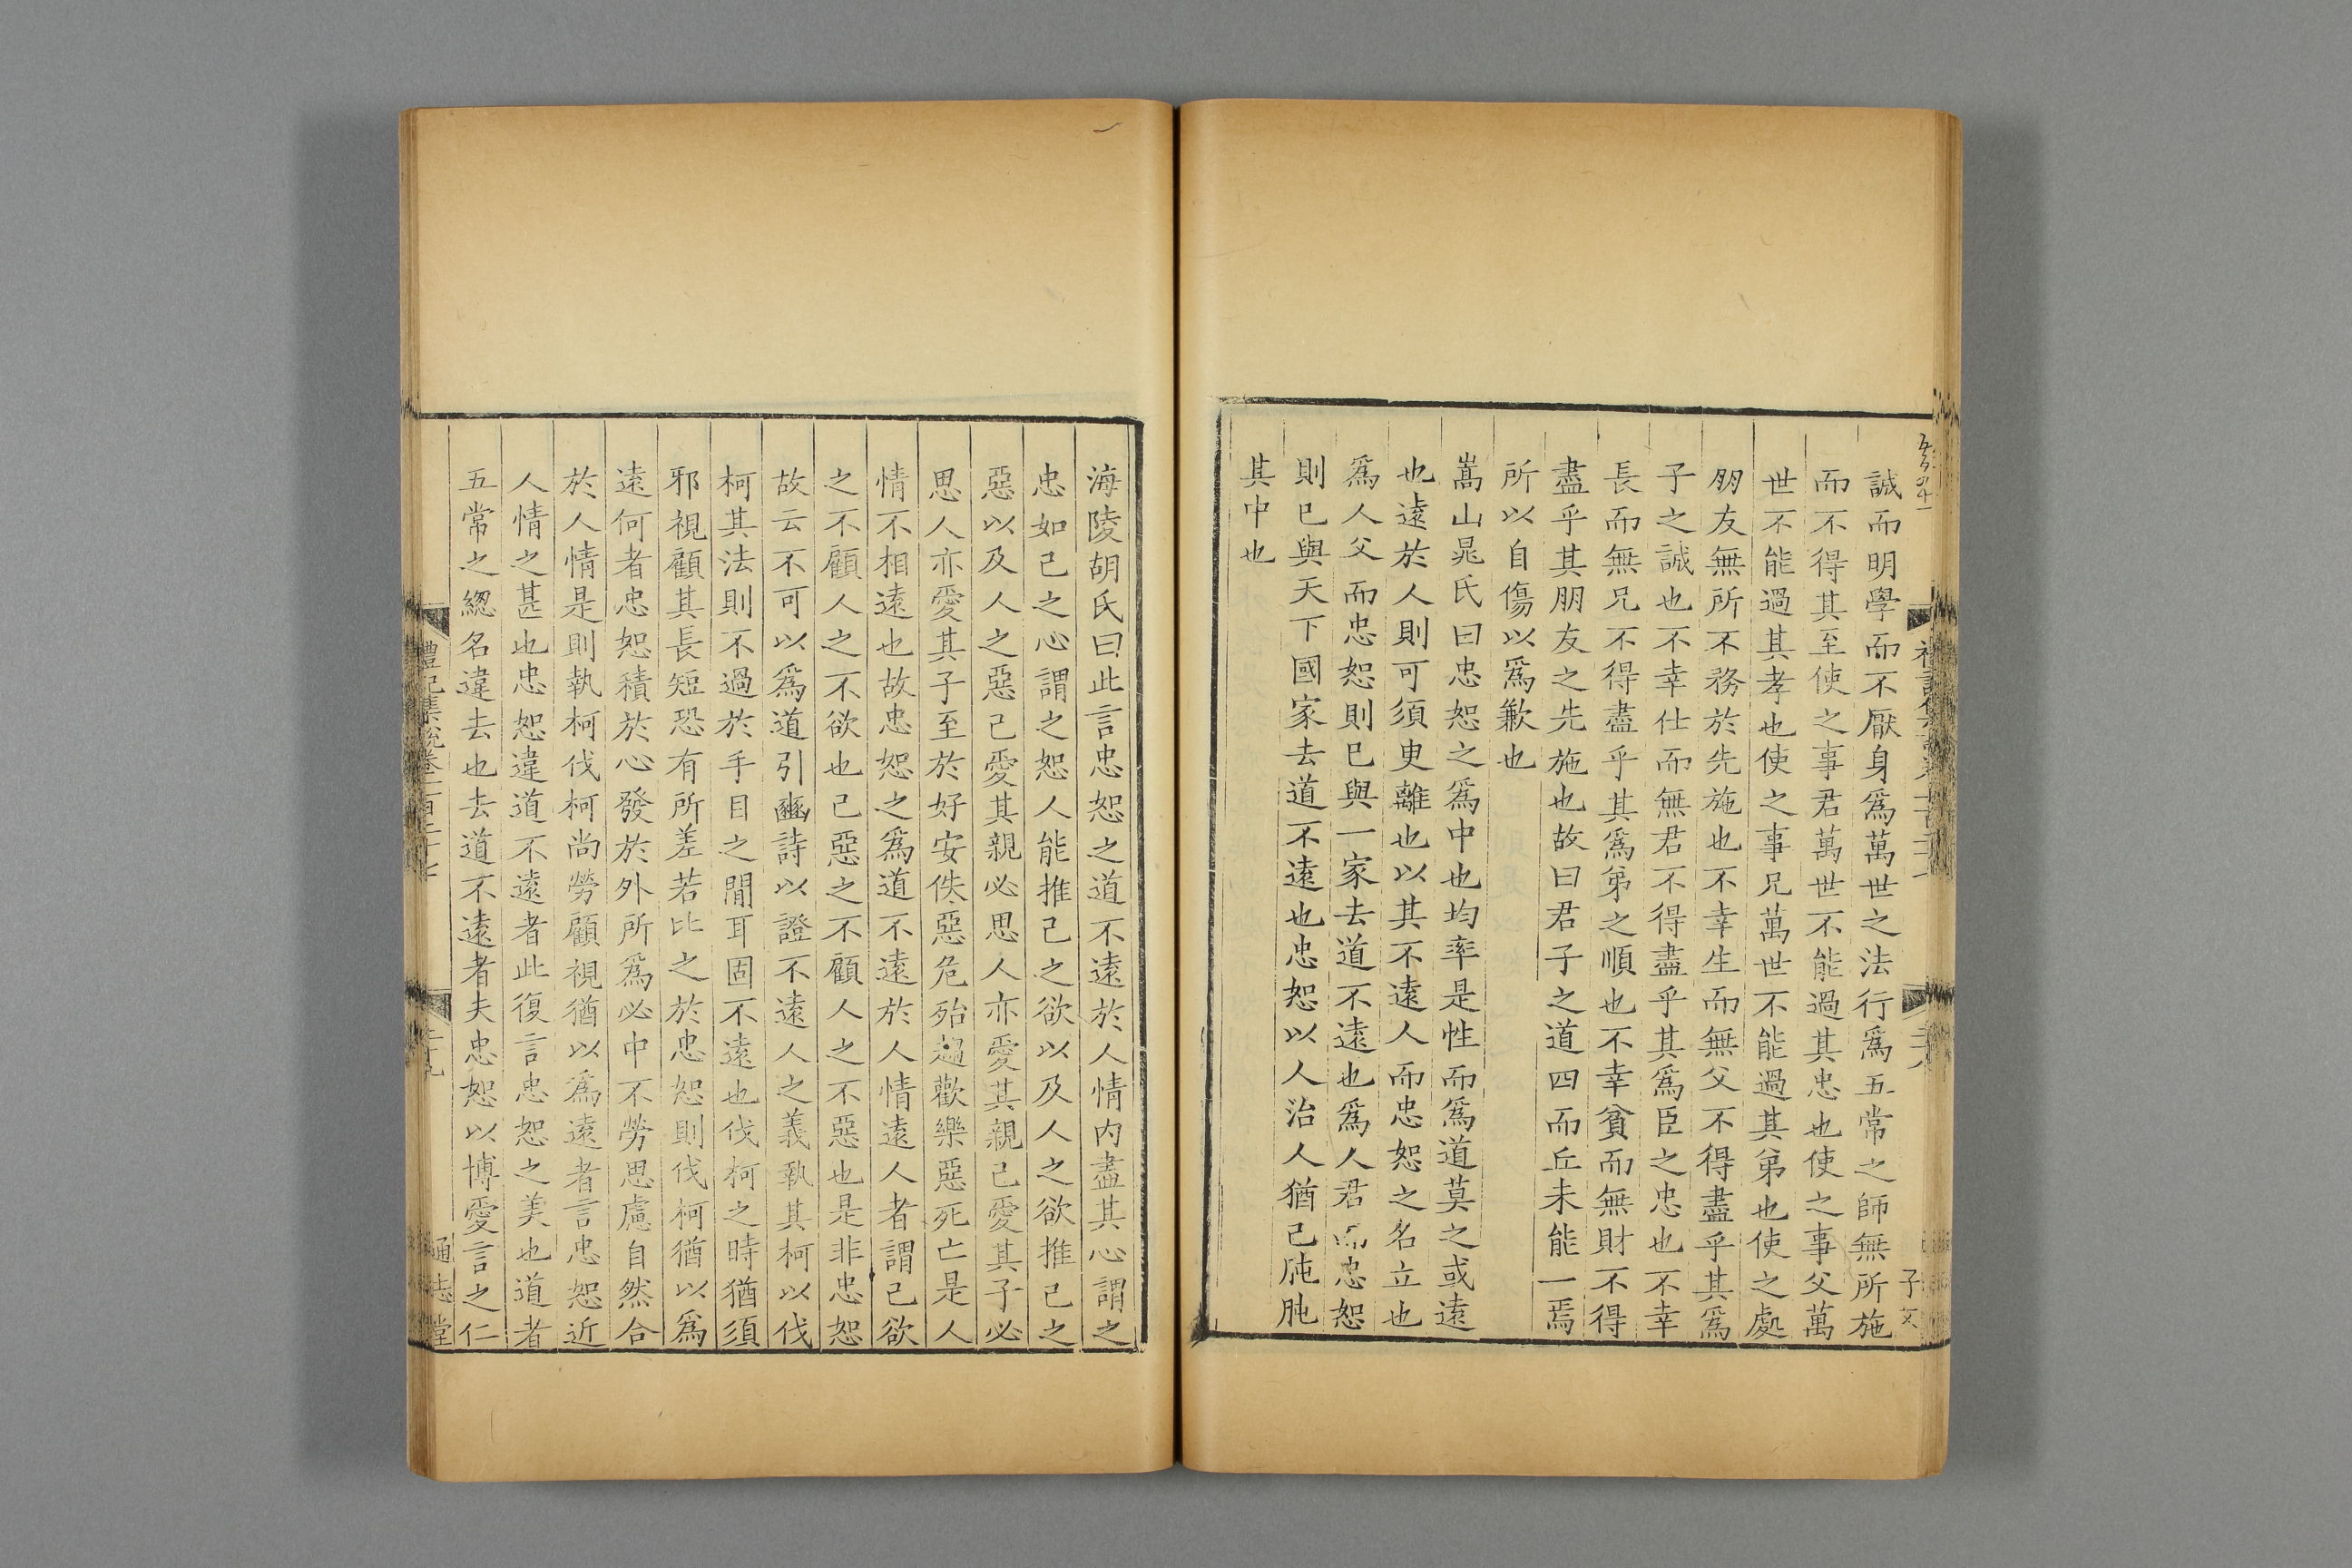 誠而明學而不厭身爲萬世之法行爲五常之師無所施
而不得其至使之事君萬世不能過其忠也使之事父萬
世不能過其孝也使之事兄萬世不能過其弟也使之處
朋友無所不務於先施也不幸生而無父不得盡乎其爲
子之誠也不幸仕而無君不得盡乎其爲臣之忠也不幸
長而無兄不得盡乎其爲弟之順也不幸貧而無財不得
盡乎其朋友之先施也故曰君子之道四而丘未能一焉
所以自傷以爲歉也
嵩山晁氏曰忠恕之爲中也均率是性而爲道莫之或遠
也遠於人則可須臾離也以其不遠人而忠恕之名立也
爲人父而忠恕則已與一家去道不遠也爲人君而忠恕
則已與天下國家去道不遠也忠恕以人治人猶己肫肫
其中也
海陵胡氏曰此言忠恕之道不遠於人情内盡其心謂之
忠如己之心謂之恕人能推己之欲以及人之欲推己之
惡以及人之惡己愛其親必思人亦愛其親己愛其子必
思人亦愛其子至於好安佚惡危殆趨歡樂惡死亡是人
情不相遠也故忠恕之爲道不遠於人情遠人者謂己欲
之不顧人之不欲也己惡之不顧人之不惡也是非忠恕
故云不可以爲道引豳詩以證不遠人之義執其柯以伐
柯其法則不過於手目之間耳固不遠也伐柯之時猶須
邪視顧其長短恐有所差若比之於忠恕則伐柯猶以爲
遠何者忠恕積於心發於外所爲必中不勞思慮自然合
於人情是則執柯伐柯尚勞顧視猶以爲遠者言忠恕近
人情之甚也忠恕違道不遠者此復言忠恕之美也道者
五常之總名違去也去道不遠者夫忠恕以博愛言之仁
禮記集說卷一百二十七
二十九
通志堂